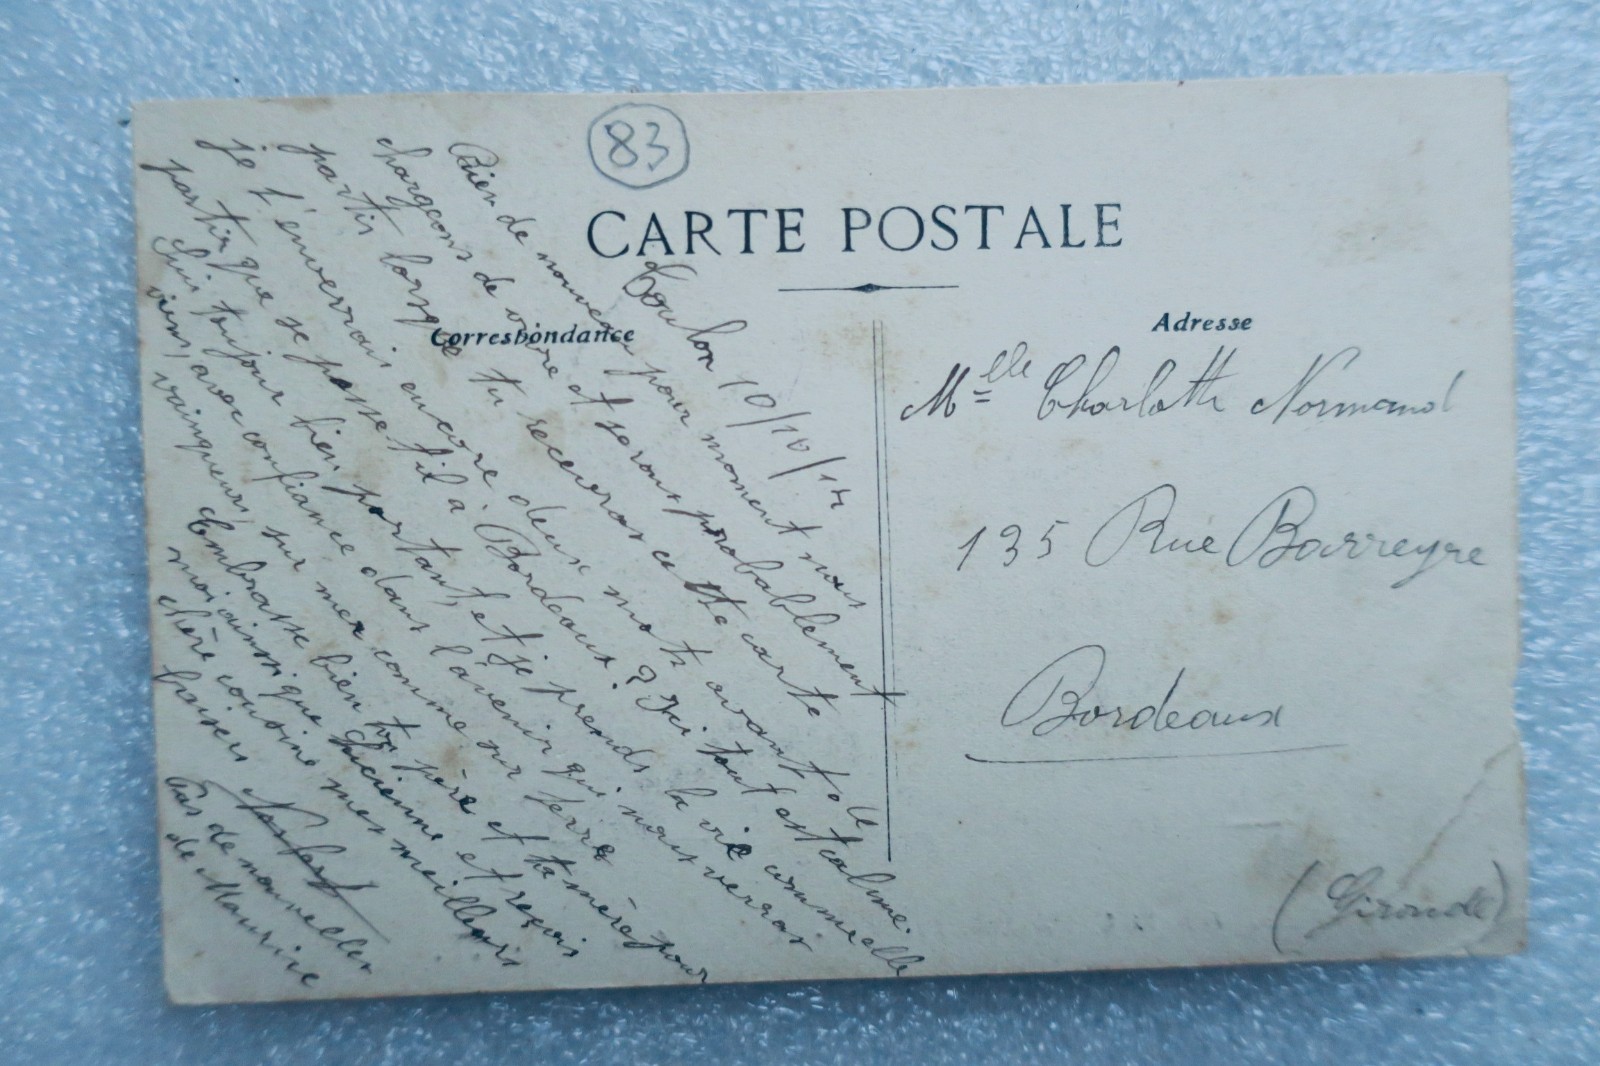 83
CARTE POSTALE
Correspondance
Adresse
Toulon 10/10/14
Rien de nouveau pour moment nous
chargeons de vivre et serons probablement
partis lorsque tu receveras cette carte
je t'enverrai encore deux mots avant de
partir que se passe t'il à Bordeaux? Ici tout est calme
Suis toujour bien portant, et je prends la vie comme elle
viens, avec confiance dans l'avenir qui nous verras
vainqueurs, sur mer comme sur terre
Embrasse bien ton père et ta mère pour
moi ainssi que Lucienne et reçois
chère cousine mes meilleurs
baisers
Pas de nouvelles
de Maurice
Mlle Charlotte Normand
135 Rue Barreyre
Bordeaux
(Gironde)